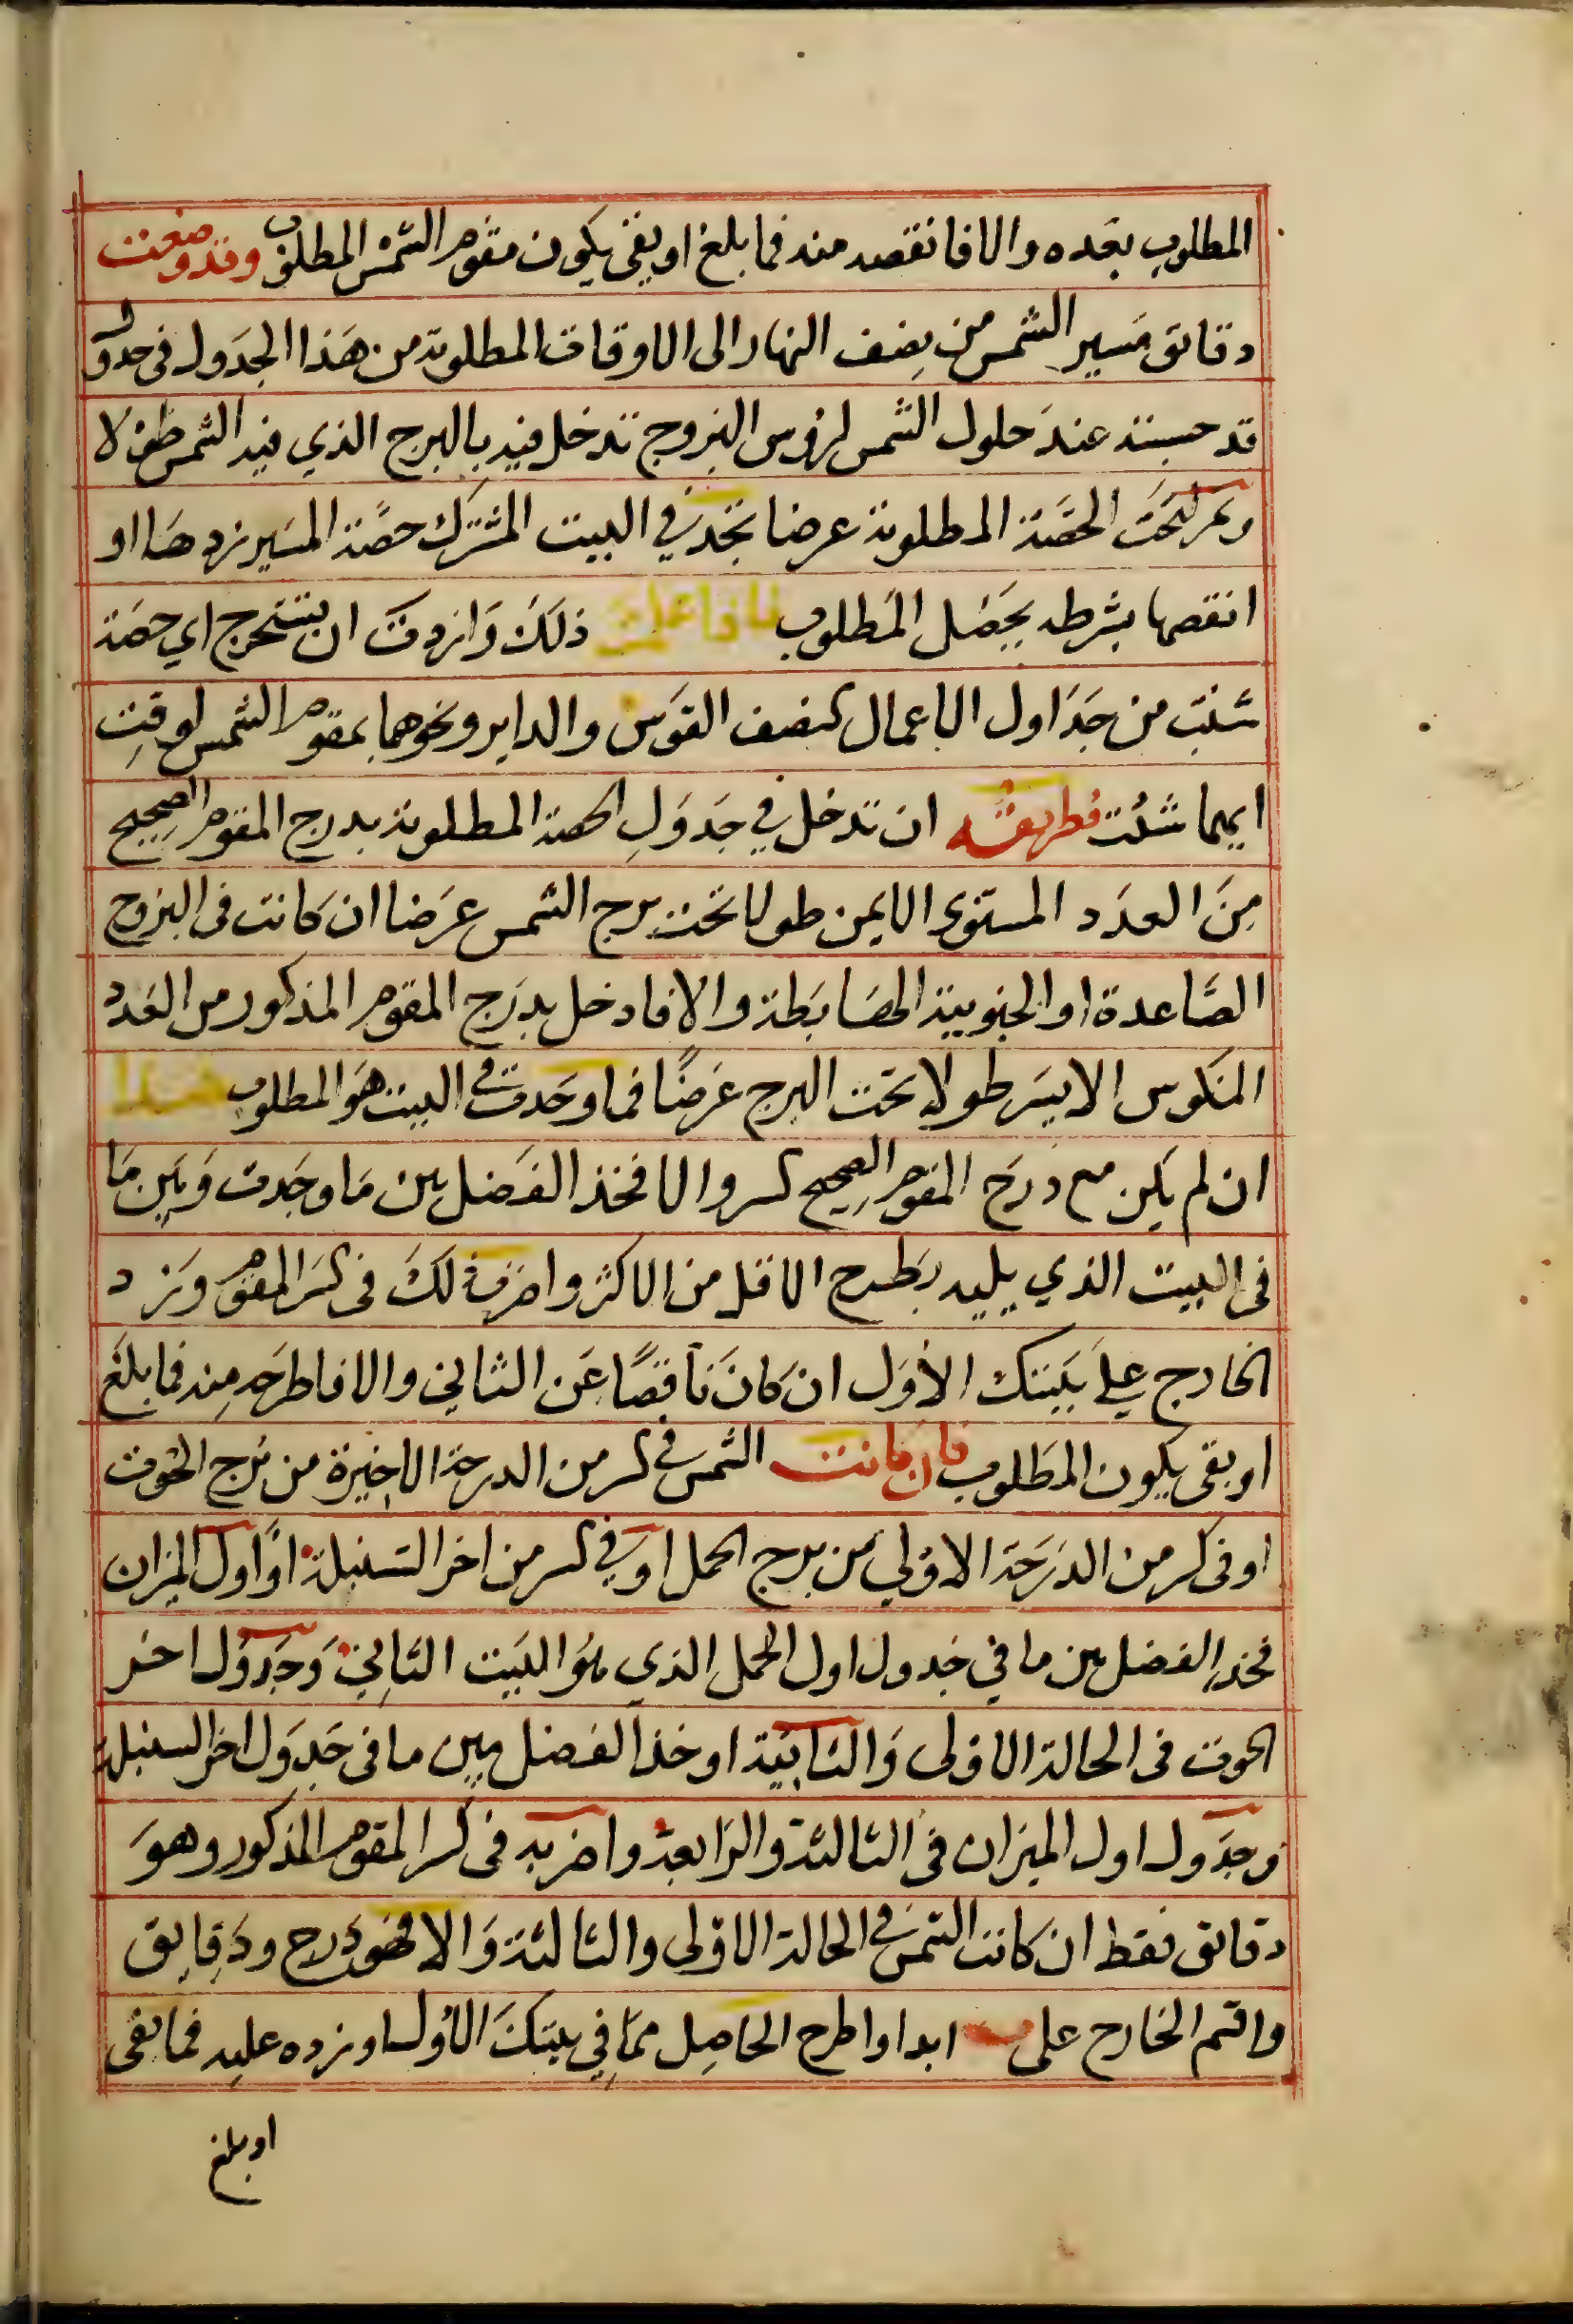 المطلوب بعده والا فانقصه منه فما بلغ او بقى يكون مقوم الشمس المطلوب وقد وضعت
دقائق مسير الشمس من نصف النهار الى الاوقات المطلوبة من هذا الجدول فى جدول
قد حسبته عند حلول الشمس لرؤس البروج تدخل فيه بالبرج الذي فيه الشمس طولا
وتحت الحصّة المطلوبة عرضا تجد في البيت المشترك حصّة المسير زدها او
انقصها بشرطه يحصل المطلوب فاذا علمت ذلك واردت ان تستخرج اي حصّة
شئت من جداول الاعمال كنصف القوس والداير ونحوهما بمقوم الشمس لوقت
ايهما شئت فطريقه ان تدخل في جدول الحصة المطلوبة بدرج المقوم الصحيح
من العدد المستوى الايمن طولا تحت برج الشمس عرضا ان كانت فى البروج
الصّاعدة او الجنوبية الهابطة والا فادخل بدرج المقوم المذكور من العدد
المنكوس الايسر طولا تحت البرج عرضًا فما وجدت في البيت هو المطلوب هذا
ان لم يكن مع درج المقوم الصحيح كسر والا فخذ الفضل بين ما وجدت وبين ما
فى البيت الذي يليه بطرح الاقل من الاكثر واضرب ذلك فى كسر المقوم وزد
الخارج على بيتك الأول ان كان ناقصًا عن الثاني والا فاطرحه منه فما بلغ
او بقى يكون المطلوب فان كانت الشمس في كسر من الدرجة الاخيرة من برج الحوت
او فى كسر من الدرجة الاولي من برج الحمل او في كسر من اخر السنبلة او اول الميزان
فخذ الفضل بين ما في جدول اول الحمل الذي هو البيت الثاني وجدول اخر
الحوت فى الحالة الاولى والثانية او خذ الفضل بين ما فى جدول اخر السنبلة
وجدول اول الميزان فى الثالثة والرابعة واضربه فى كسر المقوم المذكور وهو
دقائق فقط ان كانت الشمس في الحالة الاولى والثالثة والا فهو درج ودقايق
واقسم الخارج على ابدا واطرح الحاصل مما في بيتك الأول او زده عليه فما بقى
او بلغ